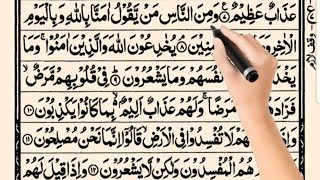 عَذَابٌ عَظِيْمٌ ۝۷ وَمِنَ النَّاسِ مَنْ يَّقُوْلُ اٰمَنَّا بِاللّٰهِ وَبِالْيَوْمِ
الْاٰخِرِ مِنِيْنَ ۝۸ يُخٰدِعُوْنَ اللّٰهَ وَالَّذِيْنَ اٰمَنُوْا ۚ وَمَا
يَخْدَ نْفُسَهُمْ وَمَا يَشْعُرُوْنَ ۝۹ فِيْ قُلُوْبِهِمْ مَّرَضٌ ۙ
فَزَادَ مَرَضًا ۚ وَلَهُمْ عَذَابٌ اَلِيْمٌ ۢ بِمَا كَانُوْا يَكْذِبُوْنَ ۝۱۰
وَاِذَا لَهُمْ لَا تُفْسِدُوْا فِي الْاَرْضِ ۙ قَالُوْٓا اِنَّمَا نَحْنُ مُصْلِحُوْنَ ۝۱۱
هُمُ الْمُفْسِدُوْنَ وَلٰكِنْ لَّا يَشْعُرُوْنَ ۝۱۲ وَاِذَا قِيْلَ لَهُمْ